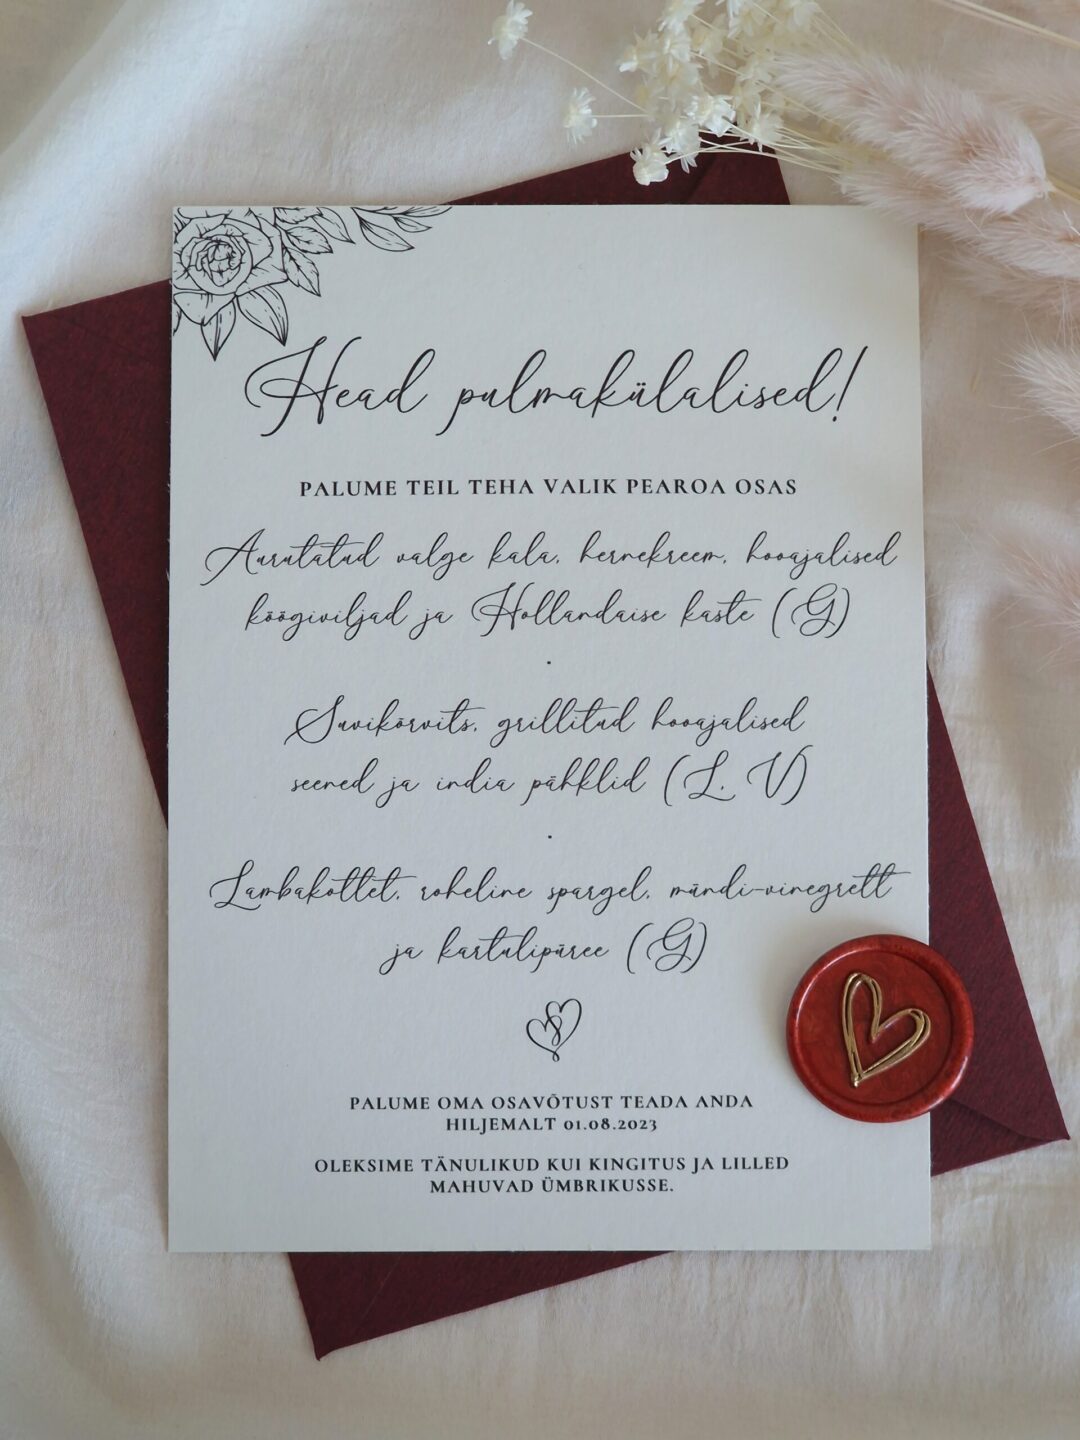 Head pulmakülalised!
PALUME TEIL TEHA VALIK PEAROA OSAS
Aurutatud valge kala, hernekreem, hooajalised
köögiviljad ja Hollandaise kaste (G)
.
Suvikõrvits, grillitud hooajalised
seened ja india pähklid (L, V)
.
Lambakotlet, roheline spargel, mündi-vinegrett
ja kartulipüree (G)
PALUME OMA OSAVÕTUST TEADA ANDA
HILJEMALT 01.08.2023
OLEKSIME TÄNULIKUD KUI KINGITUS JA LILLED
MAHUVAD ÜMBRIKUSSE.